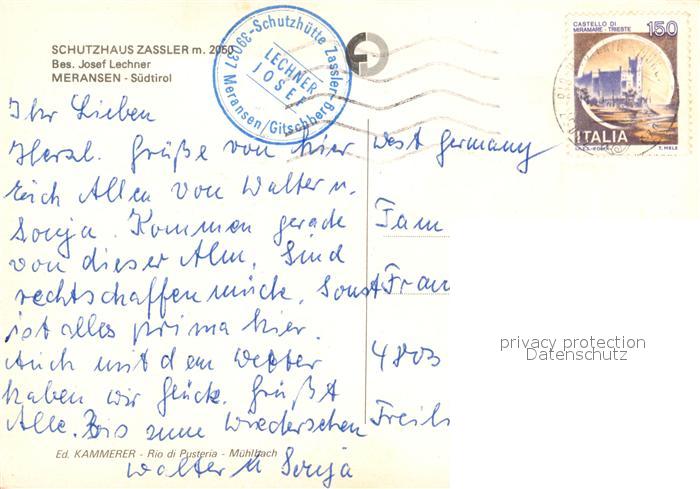 SCHUTZHAUS ZASSLER m. 2050
Bes. Josef Lechner
MERANSEN - Südtirol
39037-Schutzhütte Zassler-
Meransen/Gitschberg
LECHNER
JOSEF
CASTELLO DI
MIRAMARE - TRIESTE
150
ITALIA
T. MELE
Ihr Lieben
Herzl. Grüße von hier
Euch Allen von Walter u.
Sonja. Kommen gerade
von dieser Alm. Sind
rechtschaffen müde. Sonst
ist alles prima hier.
Auch mit dem Wetter
haben wir Glück. Grüßt
Alle. Bis zum Wiedersehen
Walter u Sonja
West Germany
Fam
Fran
4803
privacy protection
Datenschutz
Ed. KAMMERER - Rio di Pusteria - Mühlbach